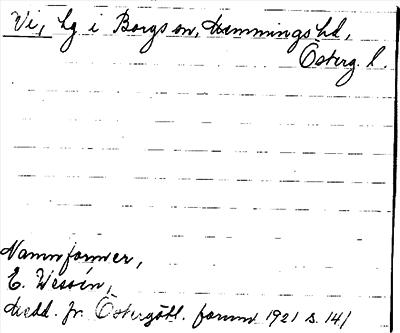 Vi, hg i Borgs sn, Memmings hd,
Österg. l.
Namnformer,
E. Wessén,
Medd. fr. Östergötl. fornm 1921 s. 141